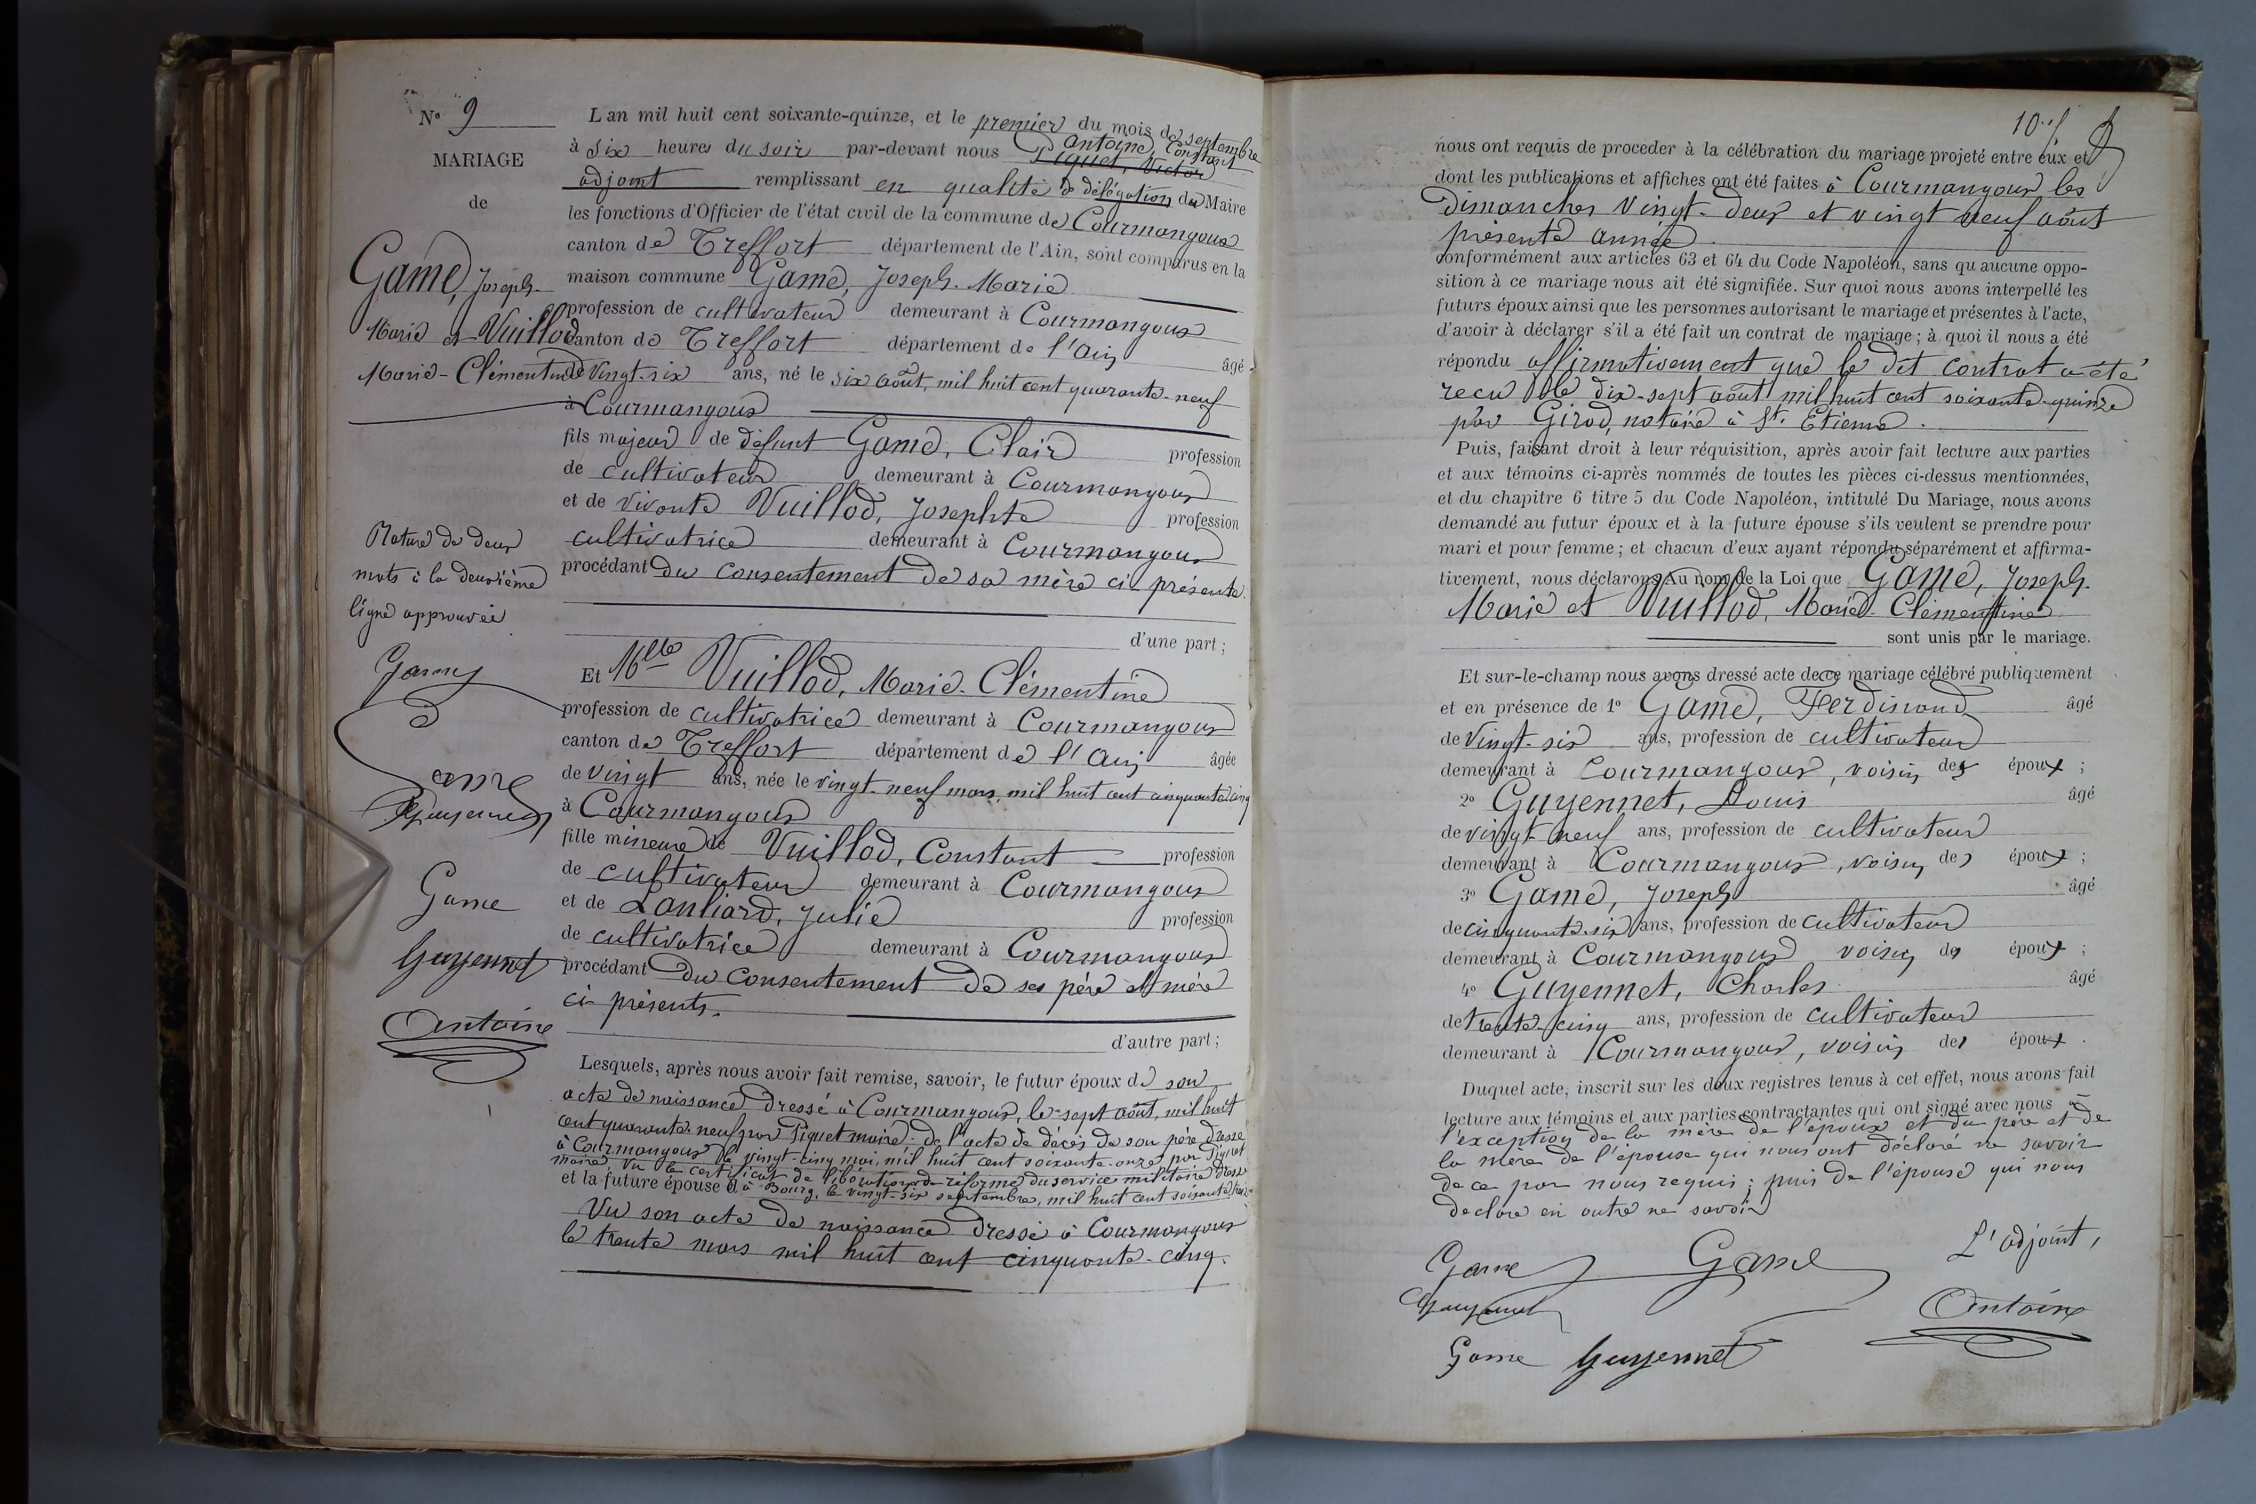 N° 9
MARIAGE
de
Game, Joseph-
Marie et Vuillod
Marie-Clémentine
Rature de deux
mots à la deuxième
ligne approuvée
Game
Game
Guyennet
Game
Guyennet
Antoine
L'an mil huit cent soixante-quinze, et le premier du mois de septembre
à six heures du soir par-devant nous Antoine, Constant
Piguet, Victor
adjoint remplissant en qualité de délégation du Maire
les fonctions d'Officier de l'état civil de la commune de Courmangoux
canton de Treffort département de l'Ain, sont comparus en la
maison commune Game, Joseph-Marie
profession de cultivateur demeurant à Courmangoux
canton de Treffort département de l'Ain âgé
de Vingt-six ans, né le six août, mil huit cent quarante-neuf
à Courmangoux
fils majeur de défunt Game, Clair profession
de cultivateur demeurant à Courmangoux
et de vivante Vuillod, Josephte profession
cultivatrice demeurant à Courmangoux
procédant du consentement de sa mère ci présente.
d'une part ;
Et Mlle Vuillod, Marie-Clémentine
profession de cultivatrice demeurant à Courmangoux
canton de Treffort département de l'Ain âgée
de vingt ans, née le vingt-neuf mars, mil huit cent cinquante cinq
à Courmangoux
fille mineure de Vuillod, Constant profession
de cultivateur demeurant à Courmangoux
et de Lanliard, Julie profession
de cultivatrice demeurant à Courmangoux
procédant du consentement de ses père et mère
ci-présents.
d'autre part ;
Lesquels, après nous avoir fait remise, savoir, le futur époux de son
acte de naissance, dressé à Courmangoux, le sept août, mil huit
cent quarante-neuf par Piguet maire. de l'acte de décès de son père dressé
à Courmangoux le vingt-cinq mai, mil huit cent soixante-onze par Piguet
maire, Vu le certificat de libération de réforme du service militaire dressé
et la future épouse à Bourg, le vingt-six septembre, mil huit cent soixante
Vu son acte de naissance dressé à Courmangoux
le trente mars mil huit cent cinquante-cinq.
10
nous ont requis de procéder à la célébration du mariage projeté entre eux et
dont les publications et affiches ont été faites à Courmangoux les
dimanches vingt-deux et vingt neuf août
présente année.
conformément aux articles 63 et 64 du Code Napoléon, sans qu'aucune oppo-
sition à ce mariage nous ait été signifiée. Sur quoi nous avons interpellé les
futurs époux ainsi que les personnes autorisant le mariage et présentes à l'acte,
d'avoir à déclarer s'il a été fait un contrat de mariage ; à quoi il nous a été
répondu affirmativement que le dit contrat a été
recu le dix-sept août mil huit cent soixante-quinze
par Girod, notaire à St. Etienne.
Puis, faisant droit à leur réquisition, après avoir fait lecture aux parties
et aux témoins ci-après nommés de toutes les pièces ci-dessus mentionnées,
et du chapitre 6 titre 5 du Code Napoléon, intitulé Du Mariage, nous avons
demandé au futur époux et à la future épouse s'ils veulent se prendre pour
mari et pour femme ; et chacun d'eux ayant répondu séparément et affirma-
tivement, nous déclarons Au nom de la Loi que Game, Joseph-
Marie et Vuillod, Marie-Clémentine
sont unis par le mariage.
Et sur-le-champ nous avons dressé acte de ce mariage célébré publiquement
et en présence de 1° Game, Ferdinand âgé
de Vingt-six ans, profession de cultivateur
demeurant à Courmangoux, voisin des époux ;
2° Guyennet, Louis âgé
de vingt-neuf ans, profession de cultivateur
demeurant à Courmangoux, voisin des époux ;
3° Game, Joseph âgé
de cinquante-six ans, profession de cultivateur
demeurant à Courmangoux voisin des époux ;
4° Guyennet, Charles âgé
de trente-cinq ans, profession de cultivateur
demeurant à Courmangoux, voisin des époux .
Duquel acte, inscrit sur les deux registres tenus à cet effet, nous avons fait
lecture aux témoins et aux parties contractantes qui ont signé avec nous à
l'exception de la mère de l'époux et du père et de
la mère de l'épouse qui nous ont déclaré ne savoir
de ce par nous requis ; puis de l'épouse qui nous
declare en outre ne savoir
Game Game L'adjoint,
Guyennet Antoine
Game Guyennet